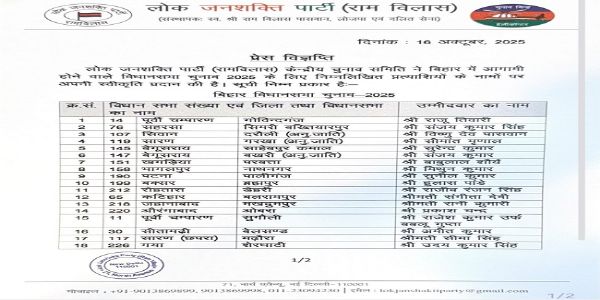 लोक जनशक्ति पार्टी (राम विलास)
(संस्थापकः स्व. श्री राम विलास पासवान, लोजपा एवं दलित सेना)
चुनाव चिन्ह
हेलीकॉप्टर
दिनांक : 16 अक्टूबर, 2025
प्रेस विज्ञप्ति
लोक जनशक्ति पार्टी (रामविलास) केन्द्रीय चुनाव समिति ने बिहार में आगामी
होने वाले विधानसभा चुनाव 2025 के लिए निम्नलिखित प्रत्याशियों के नामों पर
अपनी स्वीकृति प्रदान की है। सूची निम्न प्रकार हैः—
बिहार विधानसभा चुनाव-2025
क्र.सं. विधान सभा संख्या एवं जिला तथा विधानसभा का नाम उम्मीदवार का नाम
1 14 पूर्वी चम्पारण गोविन्दगंज श्री राजू तिवारी
2 76 सहरसा सिमरी बख्तियारपुर श्री संजय कुमार सिंह
3 107 सिवान दरौली (अनु.जाति) श्री विष्णु देव पासवान
4 119 सारण गरखा (अनु.जाति) श्री सीमांत मृणाल
5 145 बेगूसराय साहेबपुर कमाल श्री सुरेन्द्र कुमार
6 147 बेगूसराय बखरी (अनु.जाति) श्री संजय कुमार
7 151 खगड़िया परबत्ता श्री बाबूलाल शौर्य
8 158 भागलपुर नाथनगर श्री मिथुन कुमार
9 190 पटना पालीगंज श्री सुनील कुमार
10 199 बक्सर ब्रह्मपुर श्री हुलास पांडे
11 212 रोहतास डेहरी श्री राजीव रंजन सिंह
12 65 कटिहार बलरामपुर श्रीमती संगीता देवी
13 218 जहानाबाद मखदुमपुर श्रीमती रानी कुमारी
14 220 औरंगाबाद ओबरा श्री प्रकाश चन्द्र
15 11 पूर्वी चम्पारण सुगौली श्री राजेश कुमार उर्फ बबलू गुप्ता
16 30 सीतामढ़ी बेलसण्ड श्री अमीत कुमार
17 117 सारण (छपरा) मढ़ौरा श्रीमती सीमा सिंह
18 226 गया शेरघाटी श्री उदय कुमार सिंह
1/2
New Delhi
110001
नई दिल्ली-110001
मोबाइल : +91-9013869899, 9013869998, 011-23094230 | ईमेल : lokjanshaktiparty@gmail.com
1/2